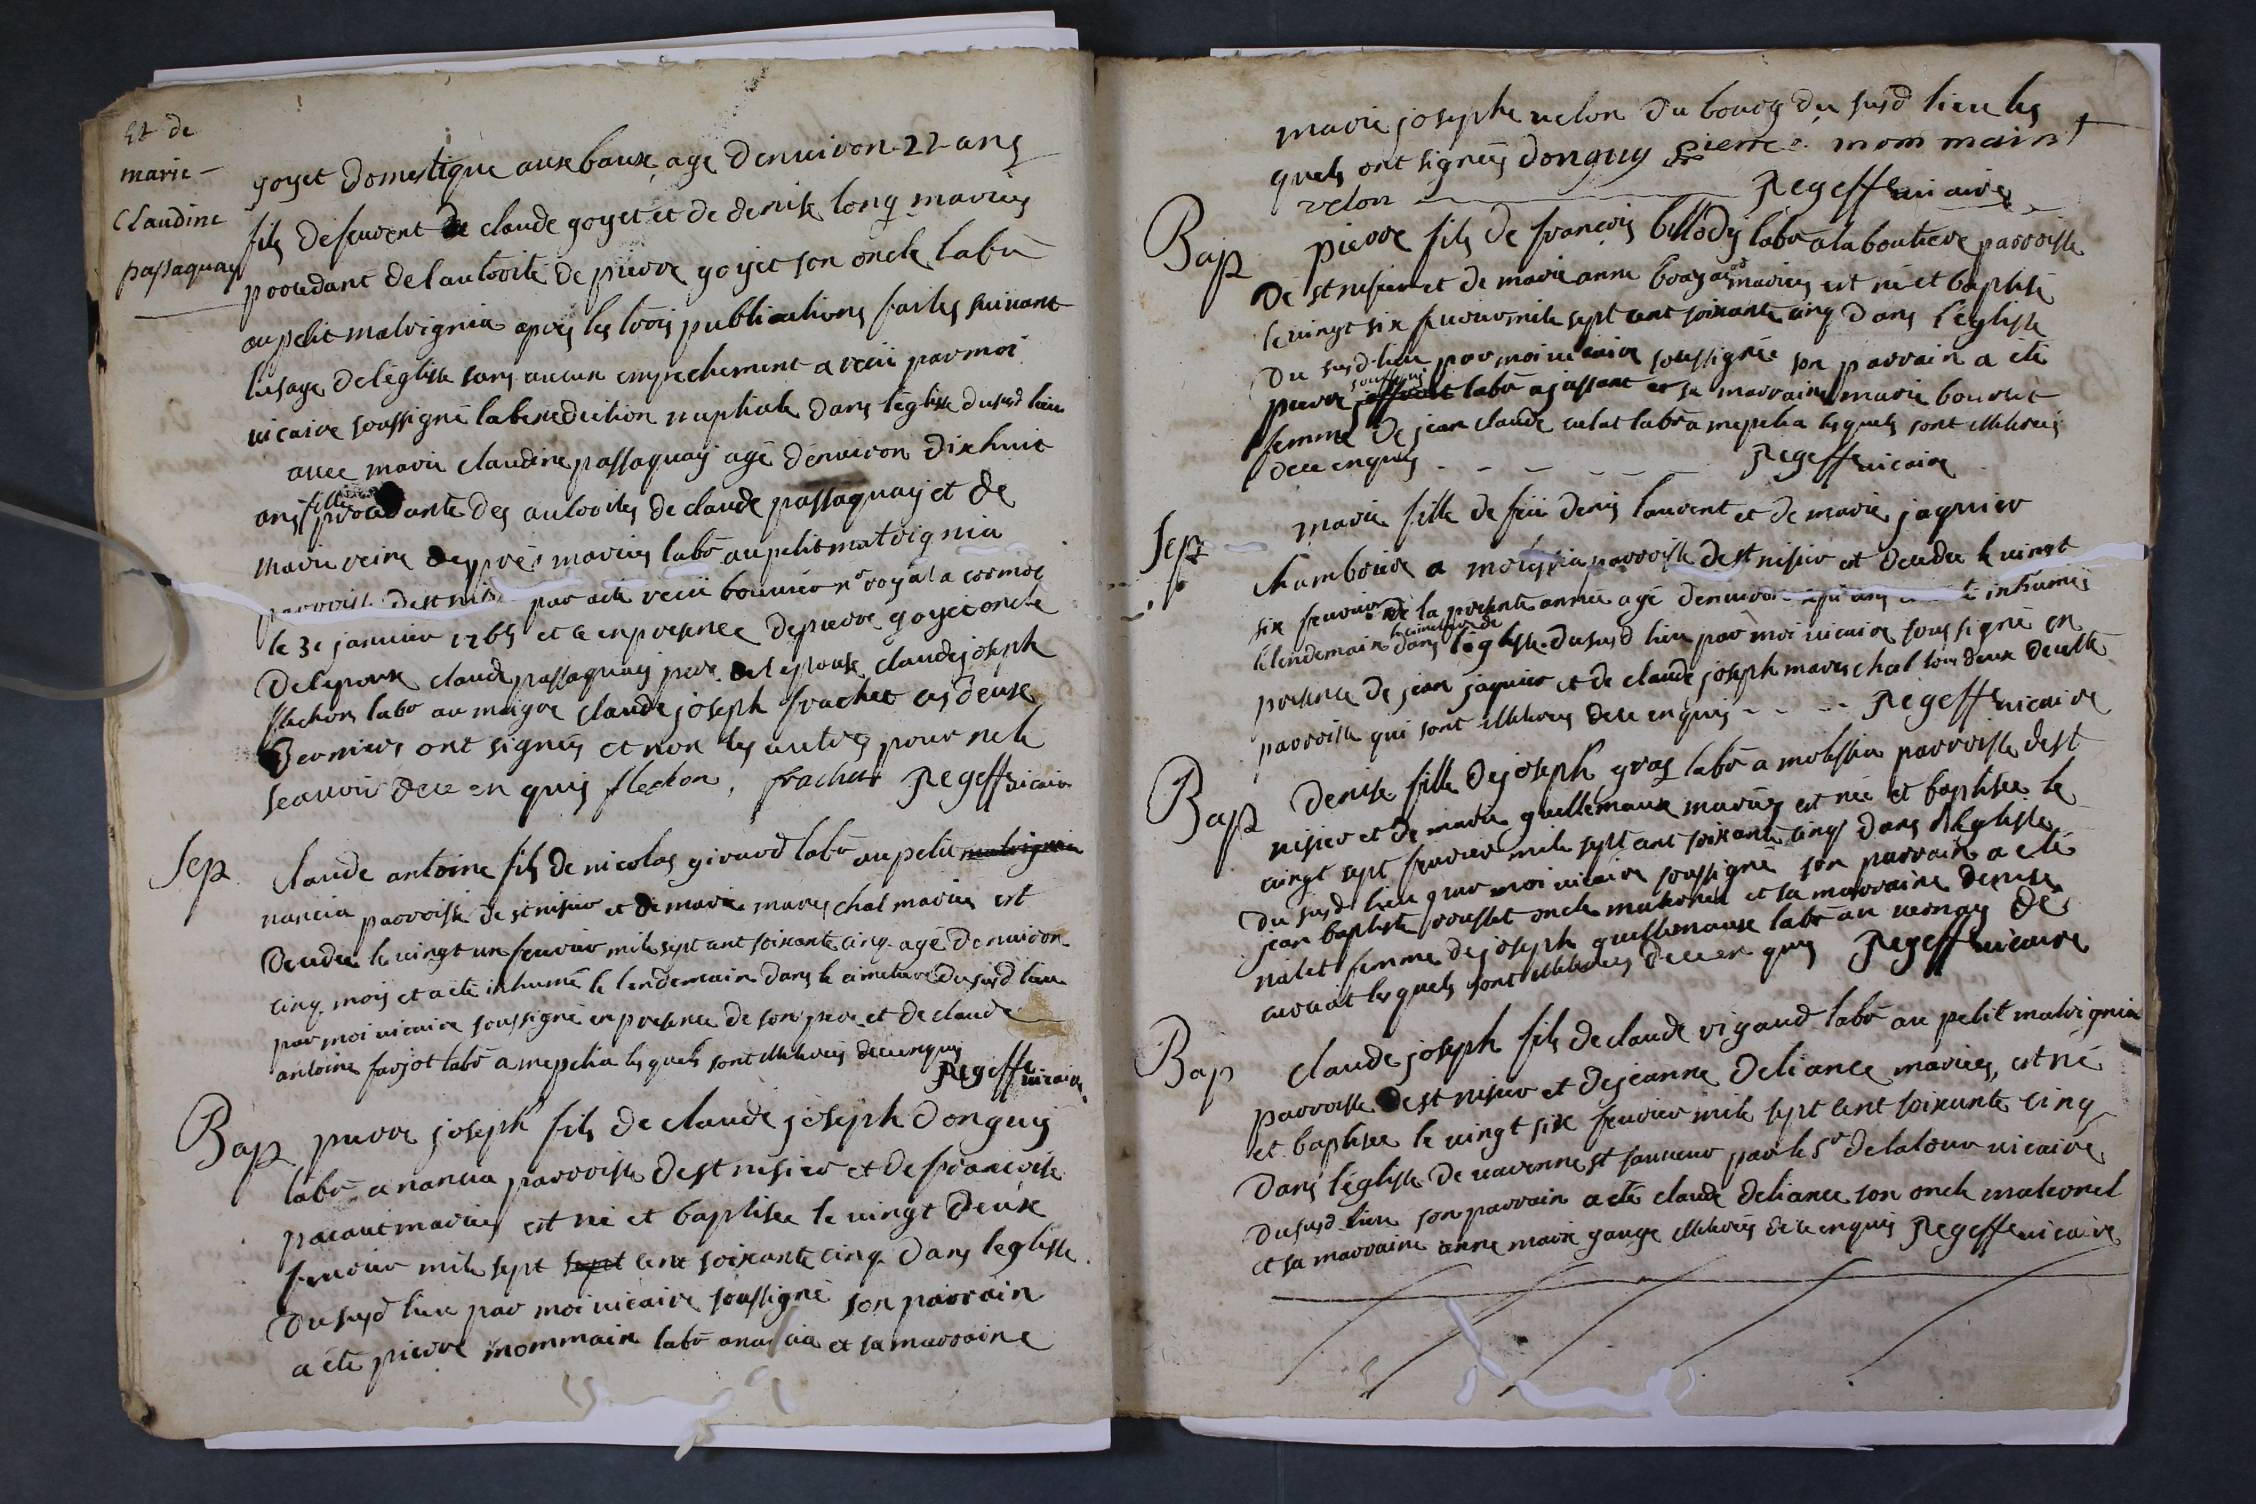 Et de
marie
Claudine
passaquay
goyet domestique aux baux, age denuiron 22 ans
fils defeuvent de claude goyet et de denise long maries
procedant de lautorité de pierre goyet son oncle labr
au petit malvignia apres les trois publications faites suivant
lusage de léglise sans aucun empechement a reçu par moi
vicaire soussigné la benediction nuptiale dans léglise du susd lieu
avec marie claudine passaquay agé denuiron dixhuit
ans fille procedante des autorités de claude passaquay et de
marie reine maries labr au petit malvignia
parroisse de st nisier par acte reçu bouvier nre royal a
le 3e janvier 1765 et ce en presence de pierre goyet oncle
de lepoux claude passaquay pere de lepouse claude joseph
flechon labr au maigre claude joseph frachet ces deux
derniers ont signés et non les autres pour ne le
scauoir de ce en quis flechon, frachet Regeffe vicaire
Sep claude antoine fils de nicolas giraud labr au petit malvignia
nancia parroisse de st nisier et de marie mareschal maries est
decedé le vingt un fevrier mile sept cent soixante cinq agé denuiron
cinq mois et a été inhumé le lendemain dans le cimetiere du susd lieu
par moi vicaire soussigné en presence de son pere et de claude
antoine farjot labr a mepelia les quels sont illiterés de ce enquis
Regeffe vicaire
Bap pierre joseph fils de claude joseph donguy
labr a nancia parroisse de st nisier et de francoise
pacaut maries est né et baptisée le vingt deux
fevrier mile sept sept cent soixante cinq dans leglise
du susd lieu par moi vicaire soussigné son parrain
a été pierre mommain labr a nancia et sa marraine
marie josephe velon du bourg du susd lieu les
quels ont signés donguy pierre mommain
velon Regeffe vicaire
Bap pierre fils de françois billody labr a la boutiere parroisse
de st nisier et de marie anne maries est né et baptisé
le vingt six fevrier mile sept cent soixante cinq dans l'église
du susd lieu par moi vicaire soussigné son parrain a été
pierre labr a jassant et sa marraine marie bourut
femme de jean claude culat labr a mepelia les quels sont illiterés
de ce enquis Regeffe vicaire
Sep marie fille de feu denis laurent et de marie jaquier
chambriere a molissia parroisse de st nisier est decedée le vingt
six fevrier de la presente année agé denuiron ans inhumée
le lendemain dans le cimetiere de léglise du susd lieu par moi vicaire soussigné en
presence de jean jaquier et de claude joseph mareschal tous deux de cette
parroisse qui sont illiterés de ce enquis Regeffe vicaire
Bap denise fille de joseph gras labr a molissia parroisse de st
nisier et de marie guillemaux maries est née et baptisée le
vingt sept fevrier mile sept cent soixante cinq dans léglise
du susd lieu par moi vicaire soussigné son parrain a été
jean baptiste rousset oncle maternel et sa marraine denise
nalet femme de joseph guillemaux labr au vernay de
les quels sont illiterés de ce en quis Regeffe vicaire
Bap claude joseph fils de claude rigaud labr au petit malvignia
parroisse de st nisier et de jeanne deliance maries, est né
et baptisée le vingt six fevrier mile sept cent soixante cinq
dans léglise de st sauveur par le sr delatour vicaire
du susd lieu son parrain a été claude deliance son oncle maternel
et sa marraine anne marie gauge illiterés de ce enquis Regeffe vicaire